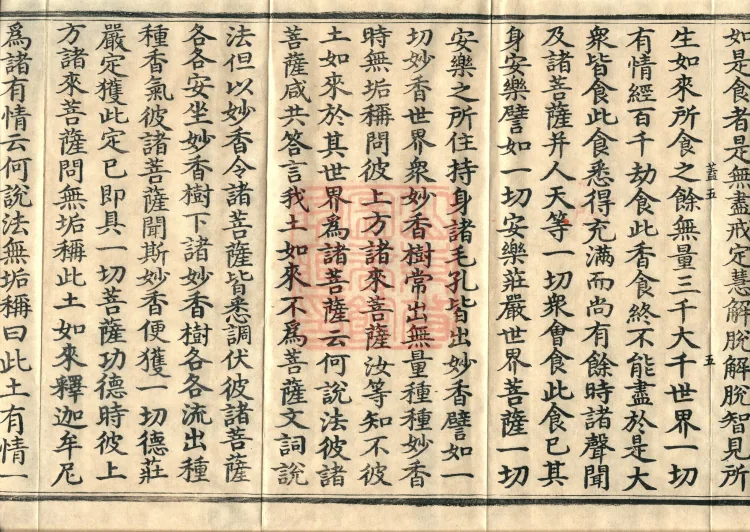 如是食者是無盡戒定慧解脫解脫智見所
生如來所食之餘無量三千大千世界一切
有情經百千劫食此香食終不能盡於是大
衆皆食此食悉得充滿而尚有餘時諸聲聞
及諸菩薩并人天等一切衆會食此食已其
身安樂譬如一切安樂莊嚴世界菩薩一切
蓋五
五
安樂之所住持身諸毛孔皆出妙香譬如一
切妙香世界衆妙香樹常出無量種種妙香
時無垢稱問彼上方諸來菩薩汝等知不彼
土如來於其世界爲諸菩薩云何說法彼諸
菩薩咸共答言我土如來不爲菩薩文詞說
法但以妙香令諸菩薩皆悉調伏彼諸菩薩
各各安坐妙香樹下諸妙香樹各各流出種
種香氣彼諸菩薩聞斯妙香便獲一切德莊
嚴定獲此定已即具一切菩薩功德時彼上
方諸來菩薩問無垢稱此土如來釋迦牟尼
爲諸有情云何說法無垢稱曰此土有情一